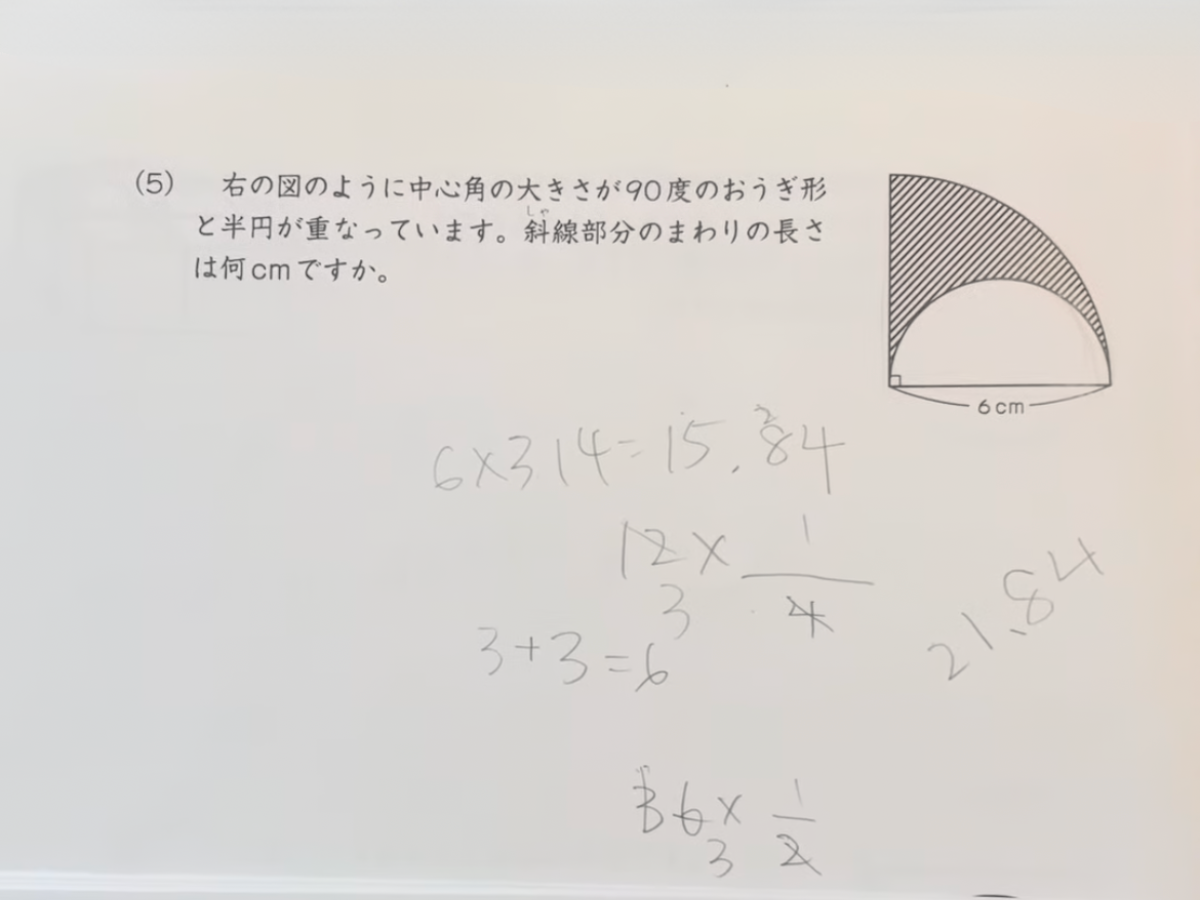 (5) 右の図のように中心角の大きさが90度のおうぎ形
と半円が重なっています。斜線部分のまわりの長さ
しゃ
は何cmですか。
6cm
6×314=15.84
2
12×1/4
3
3+3=6
21.84
36×1/2
3